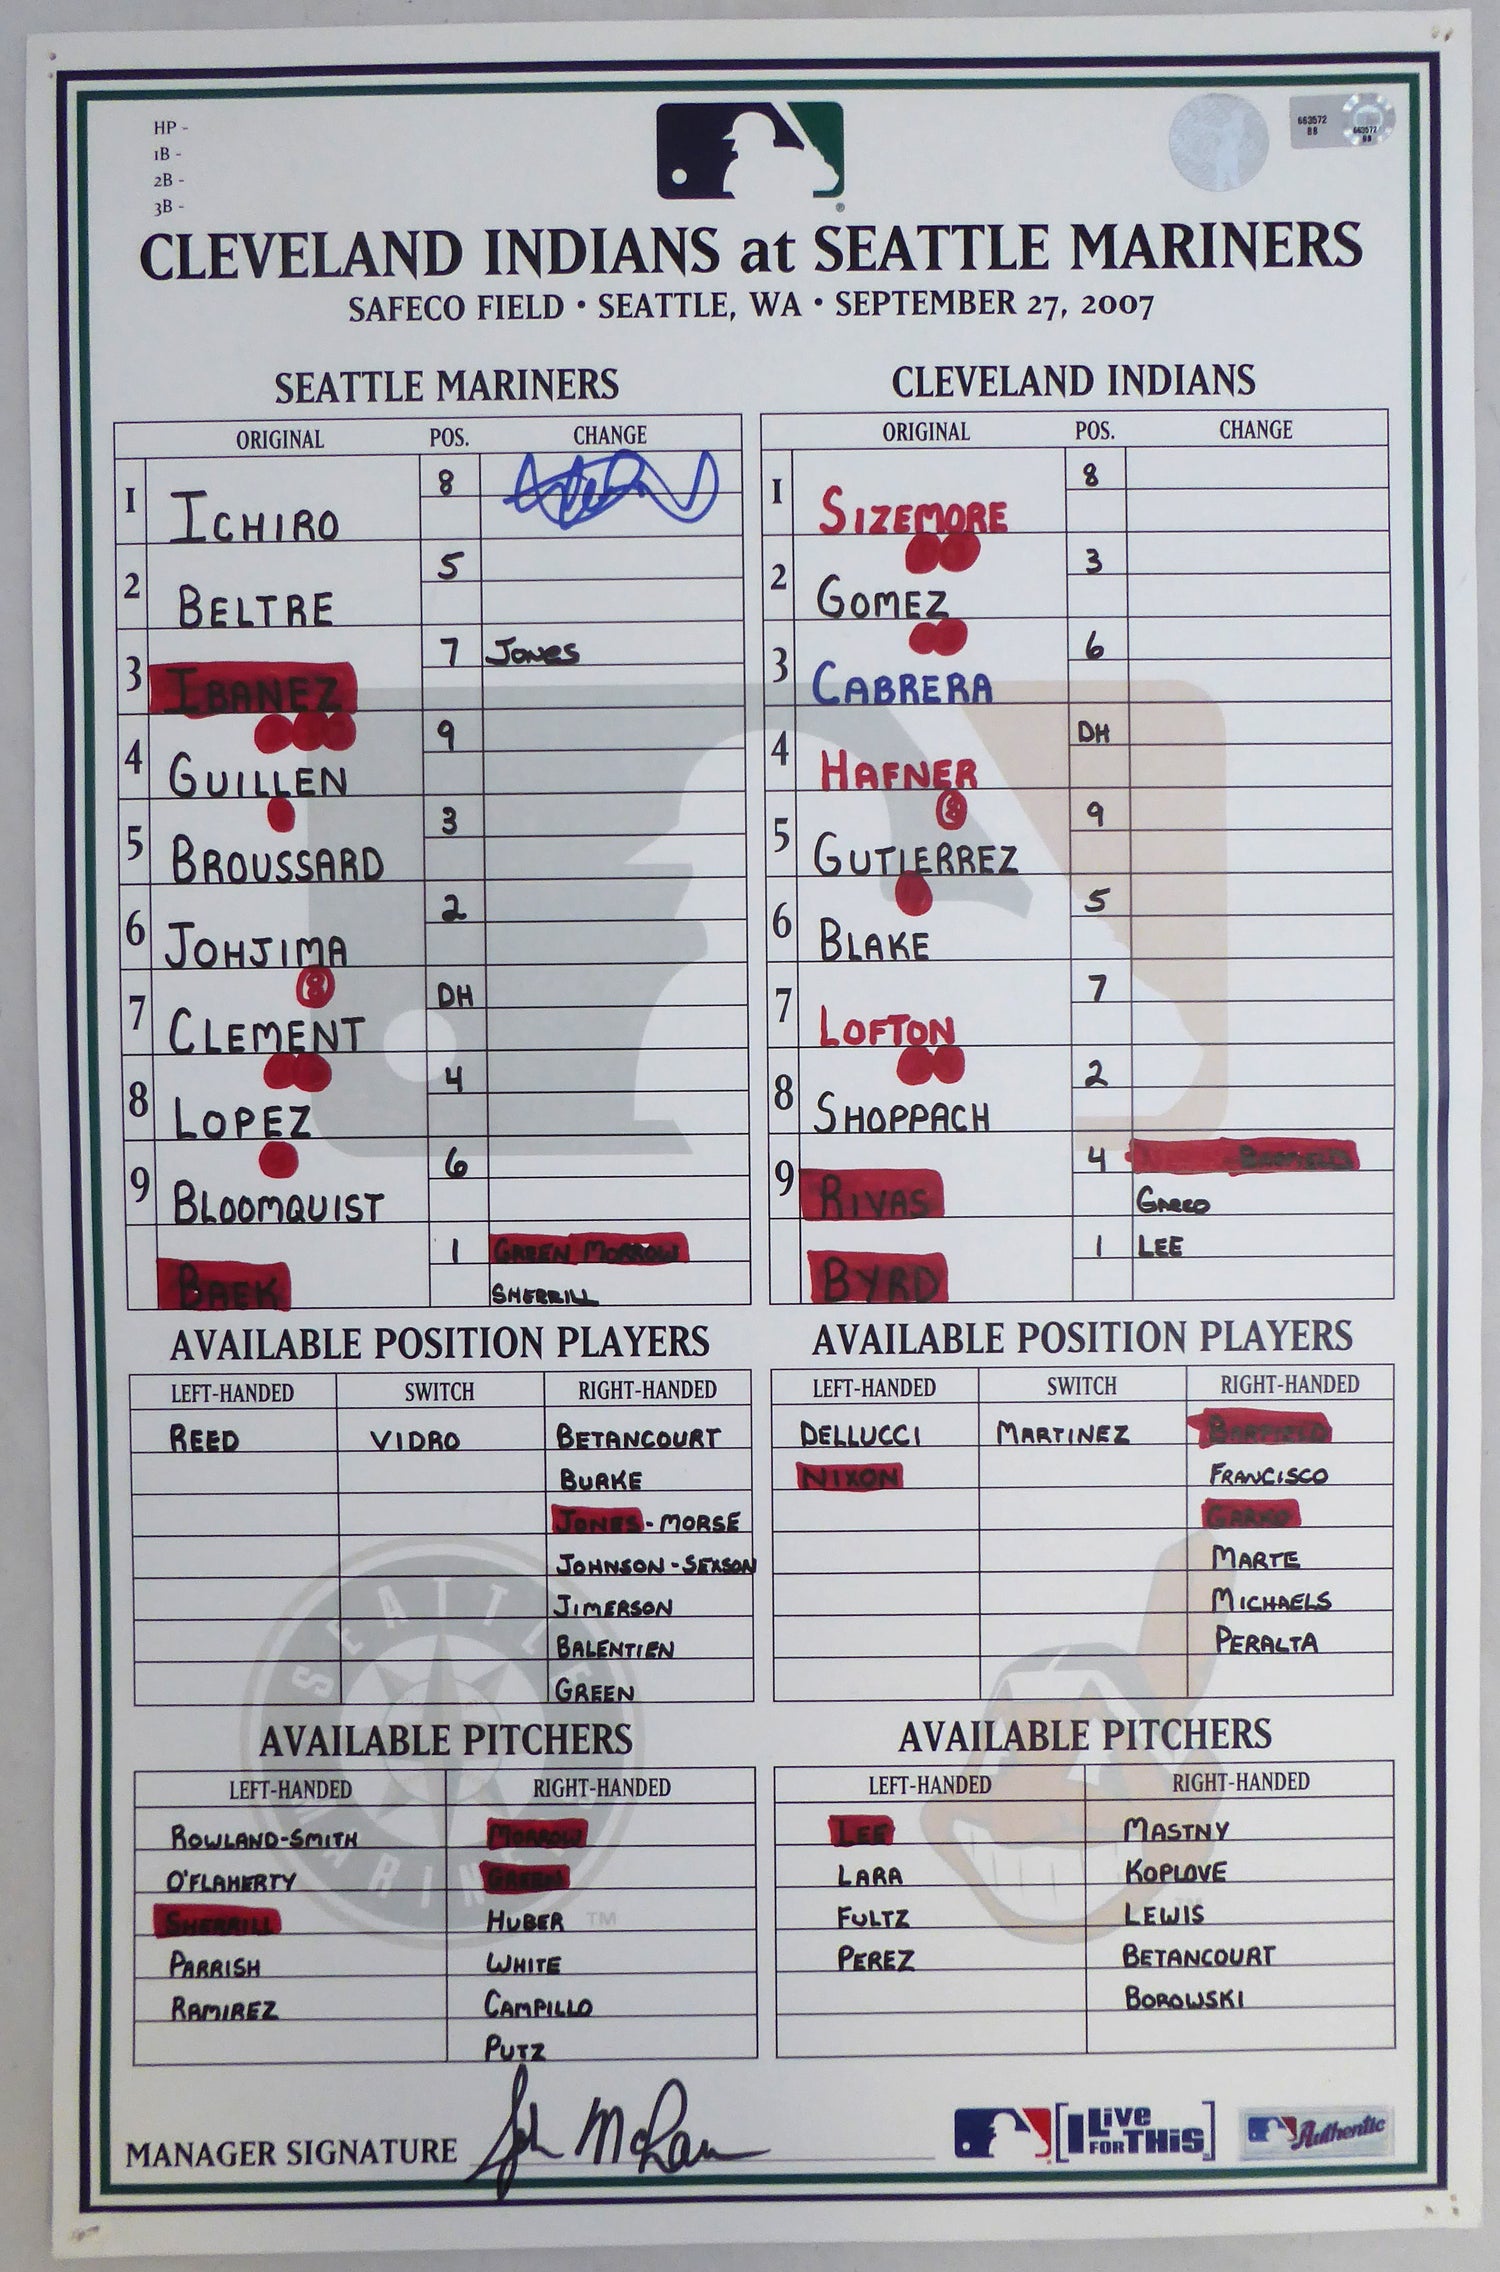 HP -
1B -
2B -
3B -
663572
BB
663572
BB
CLEVELAND INDIANS at SEATTLE MARINERS
SAFECO FIELD • SEATTLE, WA • SEPTEMBER 27, 2007
SEATTLE MARINERS
ORIGINAL POS. CHANGE
1 ICHIRO 8
2 BELTRE 5
3 IBANEZ 7 JONES
4 GUILLEN 9
5 BROUSSARD 3
6 JOHJIMA 2
7 CLEMENT DH
8 LOPEZ 4
9 BLOOMQUIST 6
BAEK 1 GREEN MORROW
SHERRILL
CLEVELAND INDIANS
ORIGINAL POS. CHANGE
1 SIZEMORE 8
2 GOMEZ 3
3 CABRERA 6
4 HAFNER DH
5 GUTIERREZ 9
6 BLAKE 5
7 LOFTON 7
8 SHOPPACH 2
9 RIVAS 4
GARKO
BYRD 1 LEE
AVAILABLE POSITION PLAYERS
LEFT-HANDED SWITCH RIGHT-HANDED
REED VIDRO BETANCOURT
BURKE
JONES - MORSE
JOHNSON - SEXSON
JIMERSON
BALENTIEN
GREEN
AVAILABLE POSITION PLAYERS
LEFT-HANDED SWITCH RIGHT-HANDED
DELLUCCI MARTINEZ BARFIELD
NIXON FRANCISCO
GARKO
MARTE
MICHAELS
PERALTA
SEATTLE
MARINERS
AVAILABLE PITCHERS
LEFT-HANDED RIGHT-HANDED
ROWLAND-SMITH MORROW
O'FLAHERTY GREEN
SHERRILL HUBER
TM
PARRISH WHITE
RAMIREZ CAMPILLO
PUTZ
AVAILABLE PITCHERS
LEFT-HANDED RIGHT-HANDED
LEE MASTNY
LARA KOPLOVE
TM
FULTZ LEWIS
PEREZ BETANCOURT
BOROWSKI
MANAGER SIGNATURE John McLaren
I LIVE FOR THIS
Authentic